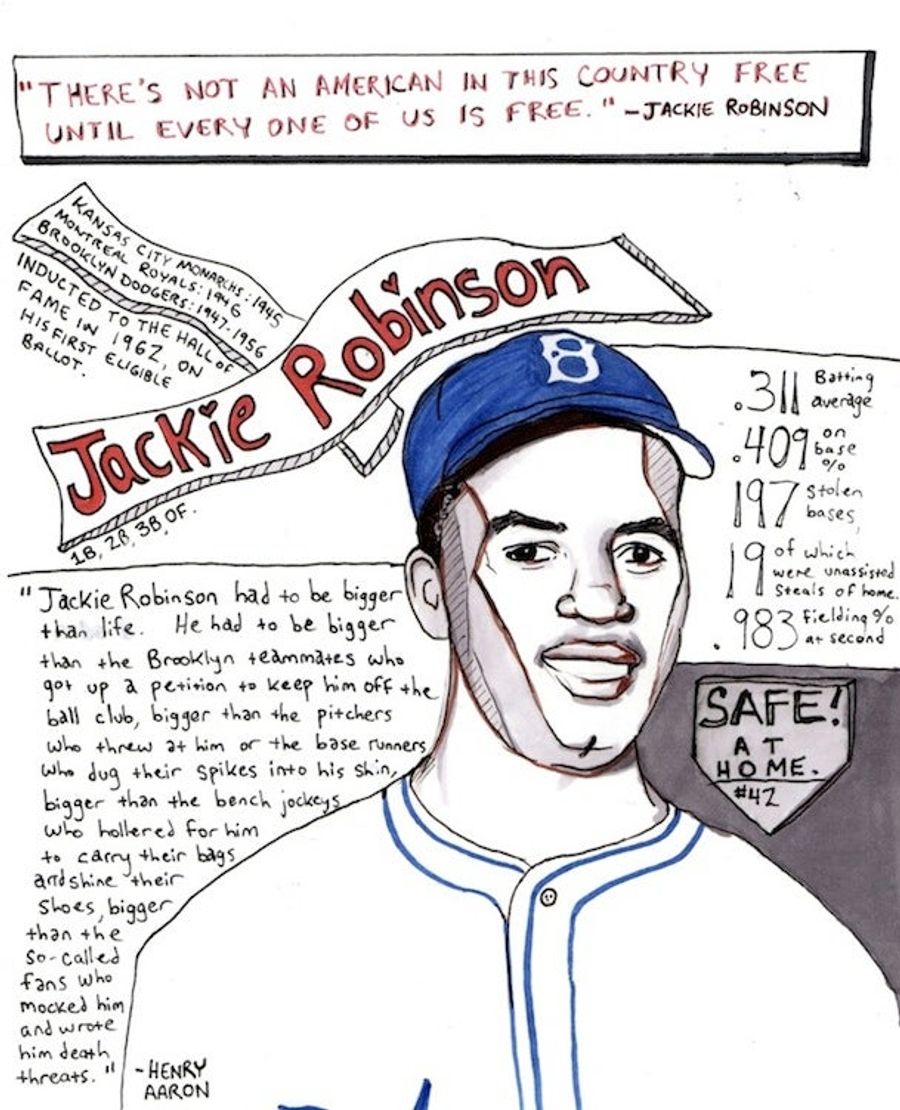 "THERE'S NOT AN AMERICAN IN THIS COUNTRY FREE
UNTIL EVERY ONE OF US IS FREE." -JACKIE ROBINSON
KANSAS CITY MONARCHS: 1945
MONTREAL ROYALS: 1946
BROOKLYN DODGERS: 1947-1956
INDUCTED TO THE HALL OF
FAME IN 1962, ON
HIS FIRST ELIGIBLE
BALLOT.
Jackie Robinson
1B, 2B, 3B, OF.
B
.311 Batting
average
.409 on
base
%
197 Stolen
bases,
19 of which
were unassisted
steals of home.
.983 Fielding %
at second
SAFE!
AT
HOME.
#42
"Jackie Robinson had to be bigger
than life. He had to be bigger
than the Brooklyn teammates who
got up a petition to keep him off the
ball club, bigger than the pitchers
who threw at him or the base runners
who dug their spikes into his shin,
bigger than the bench jockeys
who hollered for him
to carry their bags
and shine their
shoes, bigger
than the
so-called
fans who
mocked him
and wrote
him death
threats."
-HENRY
AARON